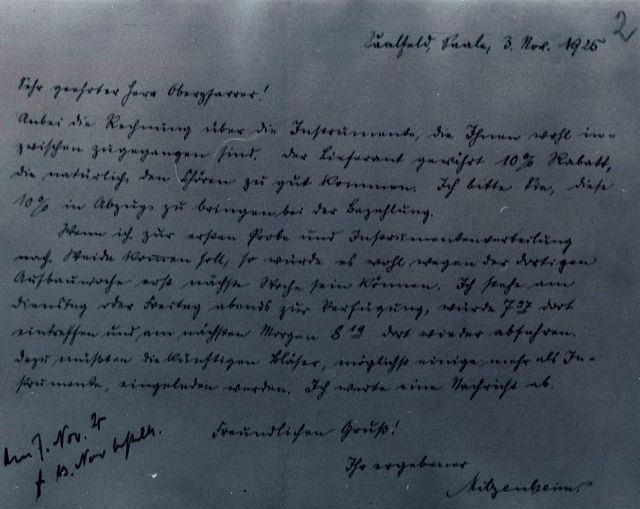 2
Saalfeld, Saale, 3. Nov. 1925
Sehr geehrter Herr Oberpfarrer!
Anbei die Rechnung über die Instrumente, die Ihnen wohl in-
zwischen zugegangen sind. Der Lieferant gewährt 10% Rabatt,
die natürlich den Chören zu gut kommen. Ich bitte Sie, diese
10% in Abzug zu bringen bei der Bezahlung.
Wenn ich zur ersten Probe und Instrumentenverteilung
nach Weida kommen soll, so würde es wohl wegen der dortigen
Aufbauwoche erst nächste Woche sein können. Ich stehe am
Dienstag oder Freitag abends zur Verfügung, würde 7 37 dort
eintreffen und am nächsten Morgen 8 19 dort wieder abfahren.
Dazu müßten die künftigen Bläser, möglichst einige mehr als In-
strumente, eingeladen werden. Ich warte eine Nachricht ab.
Freundlichen Gruß!
Ihr ergebener
Mitzenheim.
Am 7. Nov. 25
f 13. Nov bestellt.